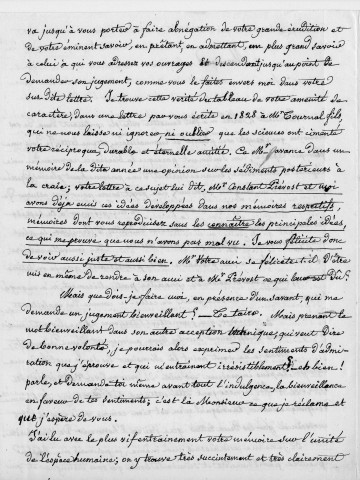 va jusqu'à vous porter à faire abnégation de votre grande érudition et
de votre éminent savoir, en prêtant, en admettant, un plus grand savoir
à celui à qui vous adressez vos ouvrages et descendant jusqu'au point de
demander son jugement, comme vous le faites envers moi dans votre
sus dite lettre. Je trouve cette vérité du tableau de votre aménité de
caractère, dans une lettre par vous écrite en 1828 à Mr Tournal fils,
qui ne nous laisse ni ignorer, ni oublier que les sciences ont cimenté
votre réciproque, durable et éternelle amitié. Ce Mr avance dans un
mémoire de la dite année une opinion sur les sédiments postérieurs à
la craie; votre lettre à ce sujet lui dit, Mr Constant Prévost et moi
avons déjà émis ces idées développées dans nos mémoires respectifs,
mémoires dont vous reproduisez sans les connaître les principales idées,
ce qui me prouve que nous n'avons pas mal vu. Je vous félicite donc
de voir aussi juste et aussi bien. Mr votre ami se félicite t-il d'être
mis en même de rendre à son ami et à Mr Prévost ce qui leur est Dû?
Mais que dois-je faire moi, en présence d'un savant, qui me
demande un jugement bienveillant? Me taire. Mais prenant le
mot bienveillant dans son autre acception technique, qui veut dire
de bonne volonté, je pourrois alors exprimer les sentiments d'admi-
ration que j'éprouve et qui m'entraînent irrésistiblement? eh bien!
parle, et demande toi même avant tout l'indulgence, la bienveillance
en faveur de tes sentiments; c'est là Monsieur ce que je réclame et
que j'espère de vous.
J'ai lu avec le plus vif entrainement votre mémoire sur l'unité
de l'espèce humaine; on y trouve très succintement et très clairement